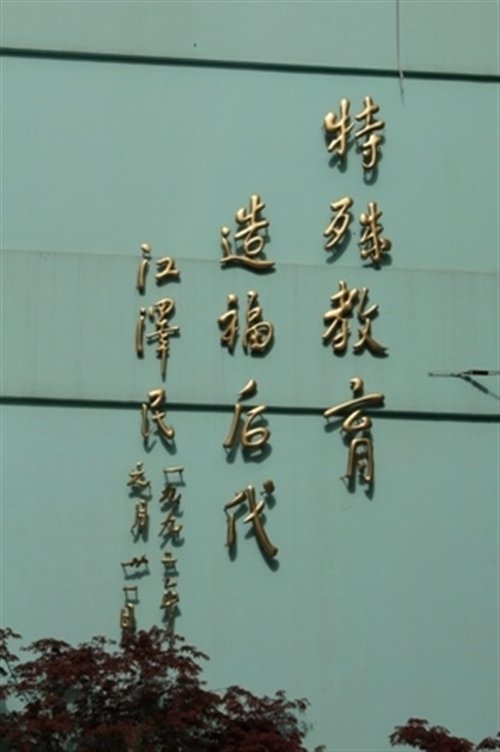 特殊教育
造福后代
江泽民
一九九三年
六月一日